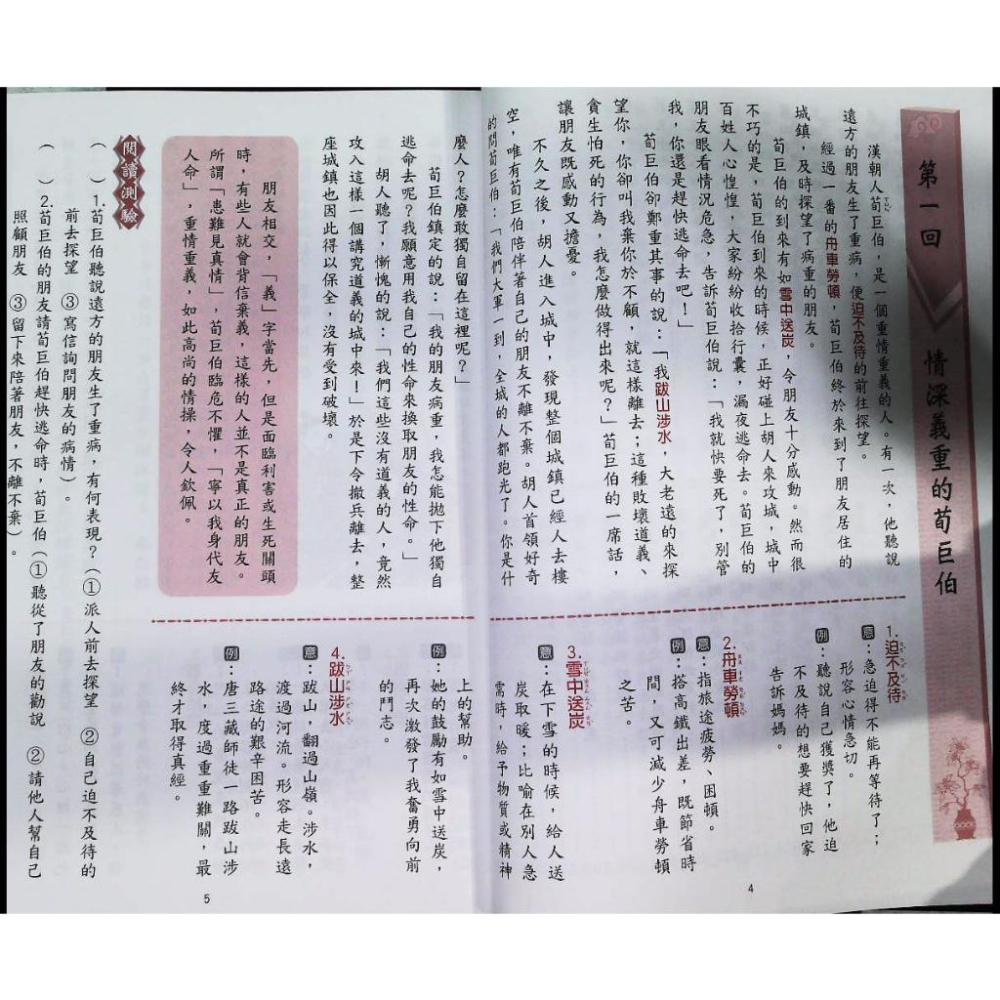 第一回　情深義重的荀巨伯
漢朝人荀巨伯，是一個重情重義的人。有一次，他聽說
遠方的朋友生了重病，便迫不及待的前往探望。
經過一番的舟車勞頓，荀巨伯終於來到了朋友居住的
城鎮，及時探望了病重的朋友。
荀巨伯的到來有如雪中送炭，令朋友十分感動。然而很
不巧的是，荀巨伯到來的時候，正好碰上胡人來攻城，城中
百姓人心惶惶，大家紛紛收拾行囊，漏夜逃命去。荀巨伯的
朋友眼看情況危急，告訴荀巨伯說：「我就快要死了，別管
我，你還是趕快逃命去吧！」
荀巨伯卻鄭重其事的說：「我跋山涉水，大老遠的來探
望你，你卻叫我棄你於不顧，就這樣離去；這種敗壞道義、
貪生怕死的行為，我怎麼做得出來呢？」荀巨伯的一席話，
讓朋友既感動又擔憂。
不久之後，胡人進入城中，發現整個城鎮已經人去樓
空，唯有荀巨伯陪伴著自己的朋友不離不棄。胡人首領好奇
的問荀巨伯：「我們大軍一到，全城的人都跑光了。你是什
1.迫不及待
意：急迫得不能再等待了；
形容心情急切。
例：聽說自己獲獎了，他迫
不及待的想要趕快回家
告訴媽媽。
2.舟車勞頓
意：指旅途疲勞、困頓。
例：搭高鐵出差，既節省時
間，又可減少舟車勞頓
之苦。
3.雪中送炭
意：在下雪的時候，給人送
炭取暖；比喻在別人急
需時，給予物質或精神
4
麼人？怎麼敢獨自留在這裡呢？」
荀巨伯鎮定的說：「我的朋友病重，我怎能拋下他獨自
逃命去呢？我願意用我自己的性命來換取朋友的性命。」
胡人聽了，慚愧的說：「我們這些沒有道義的人，竟然
攻入這樣一個講究道義的城中來！」於是下令撤兵離去，整
座城鎮也因此得以保全，沒有受到破壞。
朋友相交，「義」字當先，但是面臨利害或生死關頭
時，有些人就會背信棄義，這樣的人並不是真正的朋友。
所謂「患難見真情」，荀巨伯臨危不懼，「寧以我身代友
人命」，重情重義，如此高尚的情操，令人欽佩。
上的幫助。
例：她的鼓勵有如雪中送炭，
再次激發了我奮勇向前
的鬥志。
4.跋山涉水
意：跋山，翻過山嶺。涉水，
渡過河流。形容走長遠
路途的艱辛困苦。
例：唐三藏師徒一路跋山涉
水，度過重重難關，最
終才取得真經。
閱讀測驗
（　）1.荀巨伯聽說遠方的朋友生了重病，有何表現？（①派人前去探望　②自己迫不及待的
前去探望　③寫信詢問朋友的病情）。
（　）2.荀巨伯的朋友請荀巨伯趕快逃命時，荀巨伯（①聽從了朋友的勸說　②請他人幫自己
照顧朋友　③留下來陪著朋友，不離不棄）。
5